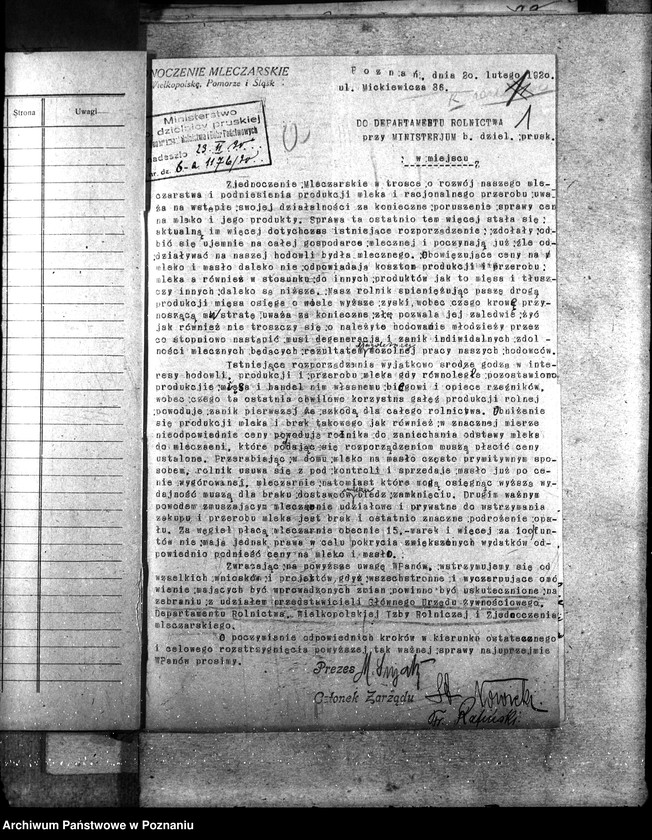 Strona Uwagi
NOCZENIE MLECZARSKIE
Wielkopolskę, Pomorze i Śląsk
Poznań, dnia 20. lutego 1920.
ul. Mickiewicza 36.
Ministerstwo
dzielnicy pruskiej
23. II 20.
6-a 1176/20
1
DO DEPARTAMENTU ROLNICTWA
przy MINISTERJUM b. dziel. prusk.
w miejscu
Zjednoczenie Mleczarskie w trosce o rozwój naszego mle-
czarstwa i podniesienia produkcji mleka i racjonalnego przerobu uwa
ża na wstępie swojej działalności za konieczne poruszenie sprawy cen
na mleko i jego produkty. Sprawa ta ostatnio tem więcej stała się
aktualną im więcej dotychczas istniejące rozporządzenie zdołały od-
bić się ujemnie na całej gospodarce mlecznej i poczynają już źle od-
działywać na naszej hodowli bydła mlecznego. Obowiązujące ceny na
mleko i masło daleko nie odpowiadają kosztom produkcji i przerobu
mleka a również w stosunku do innych produktów jak to mięsa i tłusz-
czy innych daleko są niższe. Nasz rolnik spieniężując paszę drogą
produkcji mięsa osięga o wiele wyższe zyski, wobec czego krowę przy-
noszącą mu stratę uważa za konieczne złe pozwala jej zaledwie żyć
jak również nie troszczy się o należyte hodowanie młodzieży przez
co stopniowo nastąpić musi degeneracja i zanik indiwidalnych zdol-
ności mlecznych będących rezultatem mozolnej pracy naszych hodowców.
Istniejące rozporządzenia wyjątkowo srodze godzą w inte-
resy hodowli, produkcji i przerobu mleka gdy równolegle pozostawiono
produkcję mięsa i handel nim własnemu biegowi i opiece rzeźników,
wobec czego ta ostatnia chwilowo korzystna gałęź produkcji rolnej
powoduje zanik pierwszej ze szkodą dla całego rolnictwa. Obniżanie
się produkcji mleka i brak takowego jak również w znacznej mierze
nieodpowiednie ceny powodują rolnika do zaniechania odstawy mleka
do mleczarni, które podając się rozporządzeniom muszą płacić ceny
ustalone. Przerabiając w domu mleko na masło często prymitywnym spo-
sobem, rolnik usuwa się z pod kontroli i sprzedaje masło już po ce-
nie wygórowanej, mleczarnie natomiast które mogą osięgnąć wyższą wy-
dajność muszą dla braku dostawców uledz zamknięciu. Drugim ważnym
powodem zmuszającym mleczarnie udziałowe i prywatne do wstrzymania
zakupu i przerobu mleka jest brak i ostatnio znaczne podrożenie opa-
łu. Za węgiel płacą mleczarnie obecnie 15.-marek i więcej za 100fun-
tów nie mają jednak prawa w celu pokrycia zwiększonych wydatków od-
powiednio podnieść ceny na mleko i masło.
Zwracając na powyższe uwagę WPanów, wstrzymujemy się od
wszelkich wniosków i projektów gdyż wszechstronne i wyczerpujące omó
wienie mających być wprowadzonych zmian powinno być uskutecznione na
zebraniu z udziałem przedstawicieli Głównego Urzędu Żywnościowego,
Departamentu Rolnictwa, Wielkopolskiej Izby Rolniczej i Zjednoczenia
mleczarskiego.
O poczynienie odpowiednich kroków w kierunku ostatecznego
i celowego rozstrzygnięcia powyższej tak ważnej sprawy najuprzejmie
WPanów prosimy.
Prezes
Członek Zarządu
St. Nowicki.
Fr. Kasiński
Archiwum Państwowe w Poznaniu